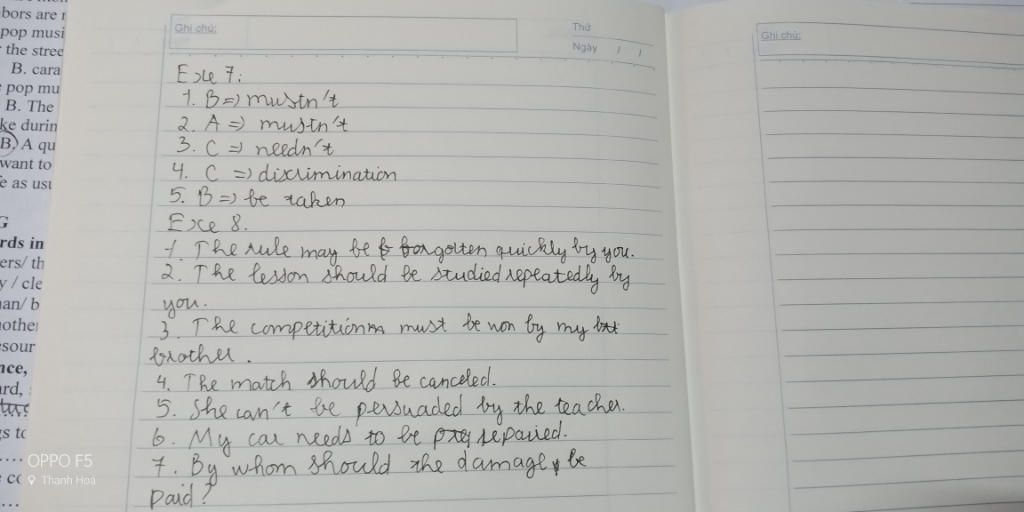 bors are
pop musi
the stree
B. cara
pop mu
B. The
ke durin
B. A qu
want to
e as usu
G
rds in
ers/ th
y / cle
an/ b
nothe
sour
nce,
ard,
s to
Ghi chú:
Thứ
Ngày / /
Exe 7:
1. B => mustn't
2. A => mustn't
3. C => needn't
4. C => discrimination
5. B => be taken
Exe 8.
1. The rule may be forgotten quickly by you.
2. The lesson should be studied repeatedly by
you.
3. The competition must be won by my
brother.
4. The match should be canceled.
5. She can't be persuaded by the teacher.
6. My car needs to be repaired.
7. By whom should the damage be
paid?
Ghi chú:
OPPO F5
Thanh Hoá